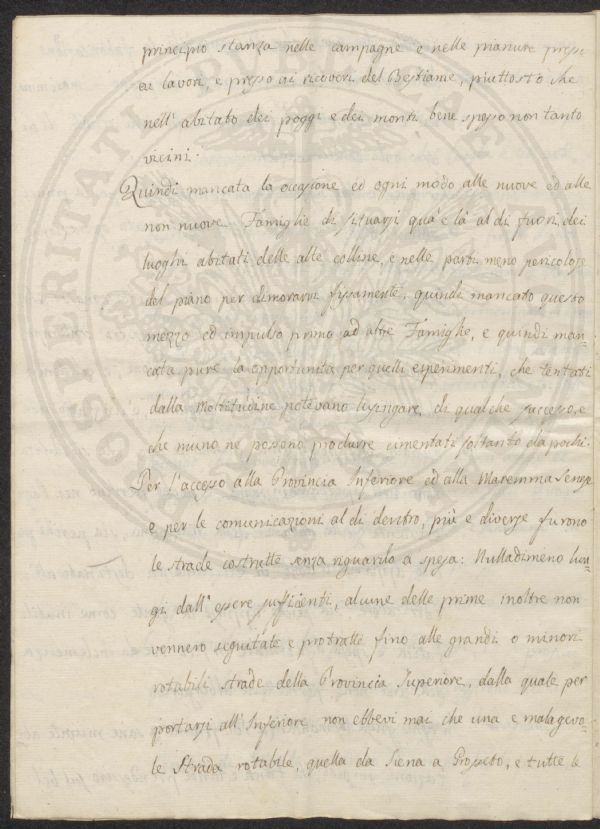 principio stanza nelle campagne e nelle pianure presso
ai lavori, e presso ai ricoveri del Bestiame, piuttosto che
nell' abitato dei poggi e dei monti bene spesso non tanto
vicini.
Quindi mancata la occasione ed ogni modo alle nuove ed alle
non nuove Famiglie di situarsi quà e là al di fuori dei
luoghi abitati delle alte colline, e nelle parti meno pericolose
del piano per dimorarvi fissamente, quindi mancato questo
mezzo ed impulso primo ad altre Famiglie, e quindi man=
cata pure la opportunità per quelli esperimenti, che tentati
dalla moltitudine potevano lusingare di qualche successo, e
che niuno ne possono produrre cimentati soltanto da pochi.
Per l'accesso alla Provincia Inferiore ed alla Maremma Senese
e per le comunicazioni al di dentro, più e diverse furono
le strade costrutte senza riguardo a spesa: Nulladimeno lun=
gi dall' essere sufficienti, alcune delle prime inoltre non
vennero seguitate e protratte fino alle grandi o minori
rotabili strade della Provincia Superiore, dalla quale per
portarsi all' Inferiore non ebbevi mai che una e malagevo=
le Strada rotabile, quella da Siena a Grosseto, e tutte le
PROSPERITATI PUBLICAE